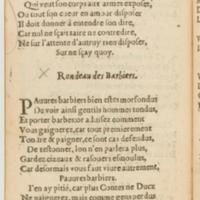 Qui veut son corps aux armes exposer,
Ou tout son cœur en amour disposer
Il doit donner à entendre son dire,
Car nul ne sçait taire ne contredire,
Ne sur l'attente d'autruy rien disposer,
Sur ne sçay quoy.
Rondeau des Barbiers.
PAuures barbiers bien estes morfondus
De voir ainsi gentils hommes tondus,
Et porter barbe: or aduisez comment
Vous gaignerez, car tout premierement
Tondre & paigner, ce sont cas defendus,
De testonner, lon n'en parlera plus,
Gardez ciseaux & rasouers esmoulus,
Car desormais vous faut viure autrement,
Pauures barbiers.
I'en ay pitié, car plus Contes ne Ducz
Ne paignerez, mais comme gens perdus